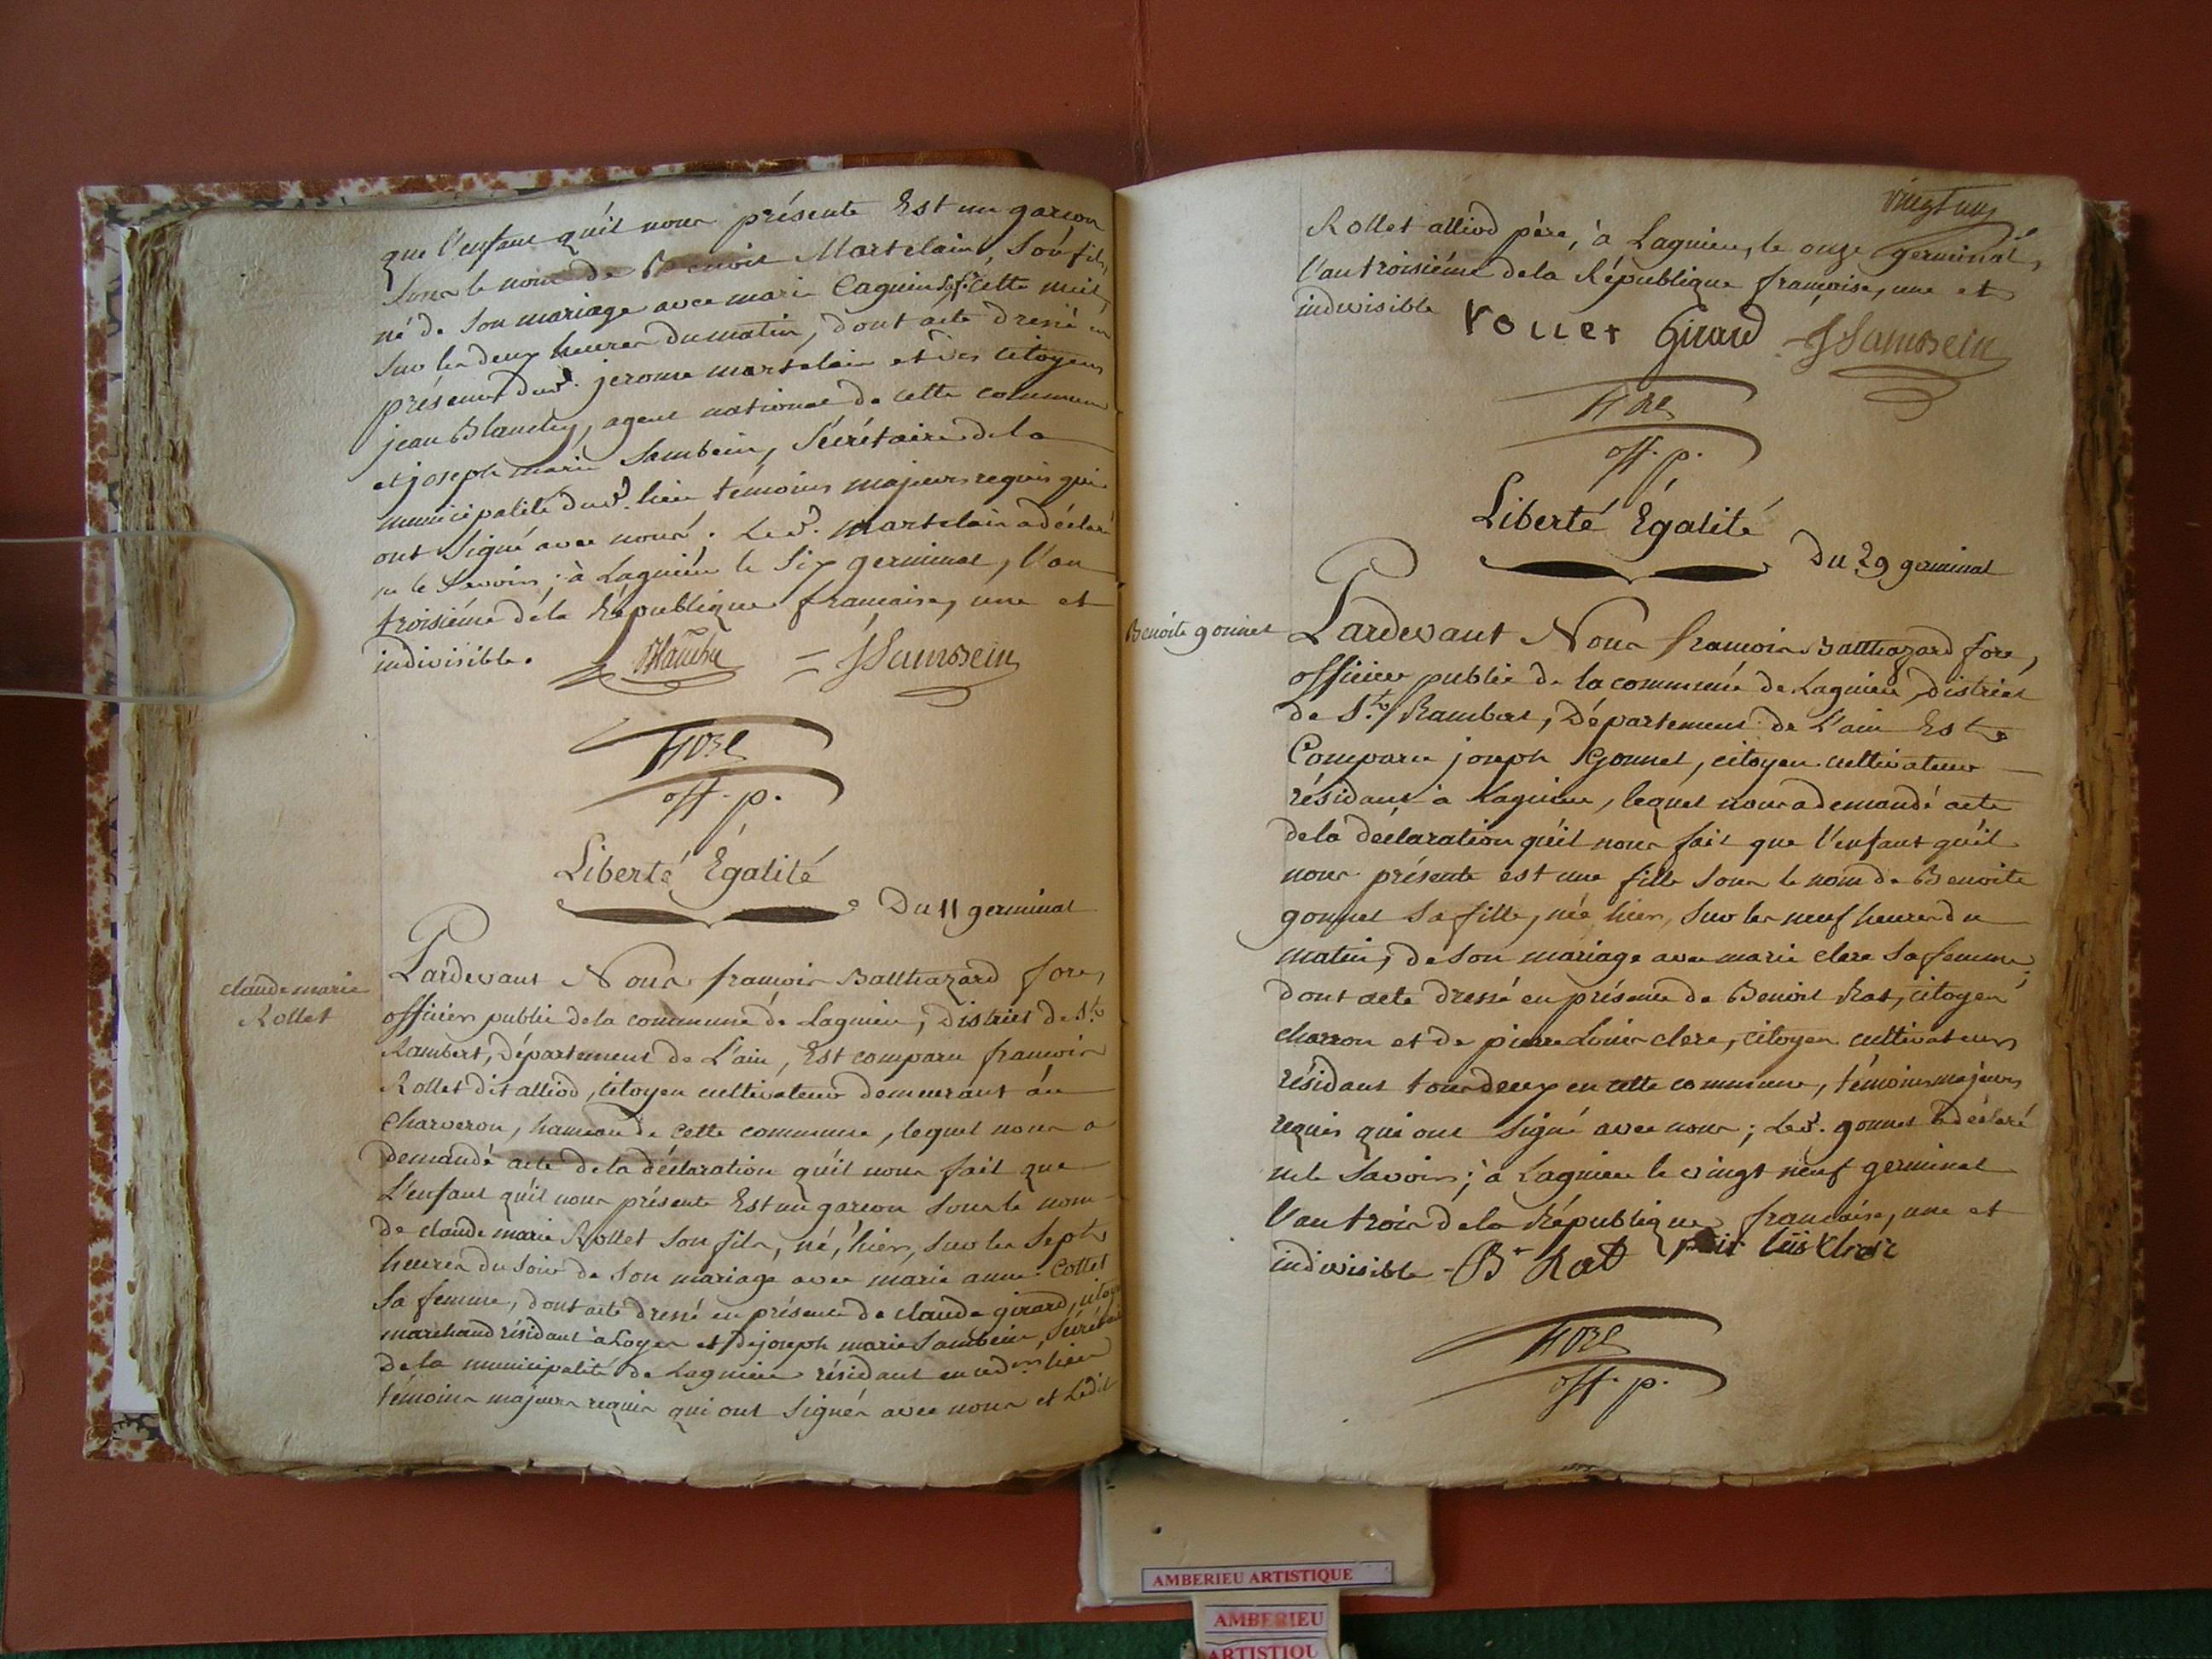 que l'enfant qu'il nous présente Est un garçon
sous le nom de Benoit Martelain, son fils,
né de son mariage avec marie cette nuit
sur les deux heures du matin, dont acte dressé en
présence dud. jerome martelain et des citoyens
jean Blanchy, agent national de cette commune
et joseph marie Sambein, Sécrétaire de la
municipalité dud. lieu témoins majeurs requis qui
ont signé avec nous. Led. martelain a déclaré
ne le savoir; à Lagnieu le six germinal, l'an
troisiéme de la République francaise, une et
indivisible.
JSambein
fore
off. p.
Liberté Égalité
Du 11 germinal
claude marie
Rollet
Pardevant Nous francois Balthazard fore,
officier public de la commune de Lagnieu, District de St.
Rambert, Département de L'ain, Est comparu francois
Rollet dit alliod, citoyen cultivateur demeurant au
charveron, hameau de cette commune, lequel nous a
demandé acte de la déclaration qu'il nous fait que
L'enfant qu'il nous présente Est un garcon sous le nom
de claude marie Rollet son fils, né, hier, sur les sept
heures du soir de son mariage avec marie anne Collet
sa femme, dont acte dressé en présence de claude girard, citoyen
marchand résidant à Loyes et de joseph marie Sambein, Sécrétaire
de la municipalité de Lagnieu résidant en ced. lieu
témoins majeurs requis qui ont signés avec nous et Ledit
vingt un
Rollet alliod père, à Lagnieu, le onze germinal,
l'an troisiéme de la République francoise, une et
indivisible
rollet Girard JSambein
fore
off. p.
Liberté Égalité
Du 29 germinal
Benoite gonnet
Pardevant Nous francois Balthazard fore,
officier public de la commune de Lagnieu, district
de St. Rambert, Département de L'ain Est
Comparu joseph Gonnet, citoyen cultivateur
résidant à Lagnieu, lequel nous a demandé acte
de la déclaration qu'il nous fait que l'enfant qu'il
nous présente est une fille sous le nom de Benoite
gonnet sa fille, née hier, sur les neuf heures du
matin, de son mariage avec marie clerc sa femme,
dont acte dressé en présence de Benoit Rat, citoyen
charron et de pierre Louis clerc, citoyen cultivateur
résidant tous deux en cette commune, témoins majeurs
requis qui ont signé avec nous; Led. gonnet a déclaré
ne le savoir; à Lagnieu le vingt neuf germinal
l'an trois de la République francaise, une et
indivisible - Bt Rat
fore
off. p.
AMBERIEU ARTISTIQUE
AMBERIEU